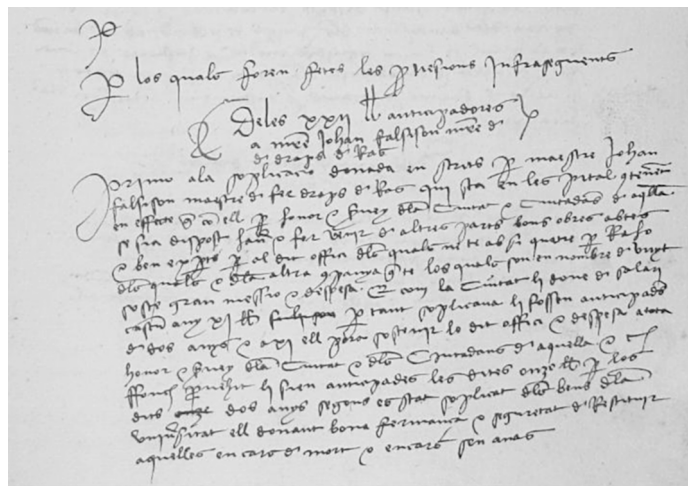 P
Per los quals foren fetes les prvisions infraseguents
Deles xxii ll anticipadores
a mestre Johan falsison mestre d
d draps d Ras
Primo ala soplicacio donada en scrits per maestre Johan
falsison maestre d fer draps d Ras qui sta en les portal
en effecte que com ell per honor e servey dla Ciutat e Ciutadans d aqlla
se sia dispost e fer venir d altres parts bons obres abtes
e ben experts per al dit offici dls quals ne te absi quatre per Raho
dls quals e dla altra companya que te los quals son en nombre d vuyt
soste gran messio e despesa E com la Ciutat li done d salari
cascun any xi ll per tant soplicava li fossen anticipades
d dos anys e axi ell pora sostenir lo dit offici e despesa atota
honor e servey dla Ciutat e dls Ciutadans d aquella e
ffonch provehit li sien anticipades les dites onze ll per los
dits dos anys segons es stat soplicat dls bens dla
universitat ell donant bona fermança e seguretat d Restituir
aquelles en cars d mort o encars sen anas